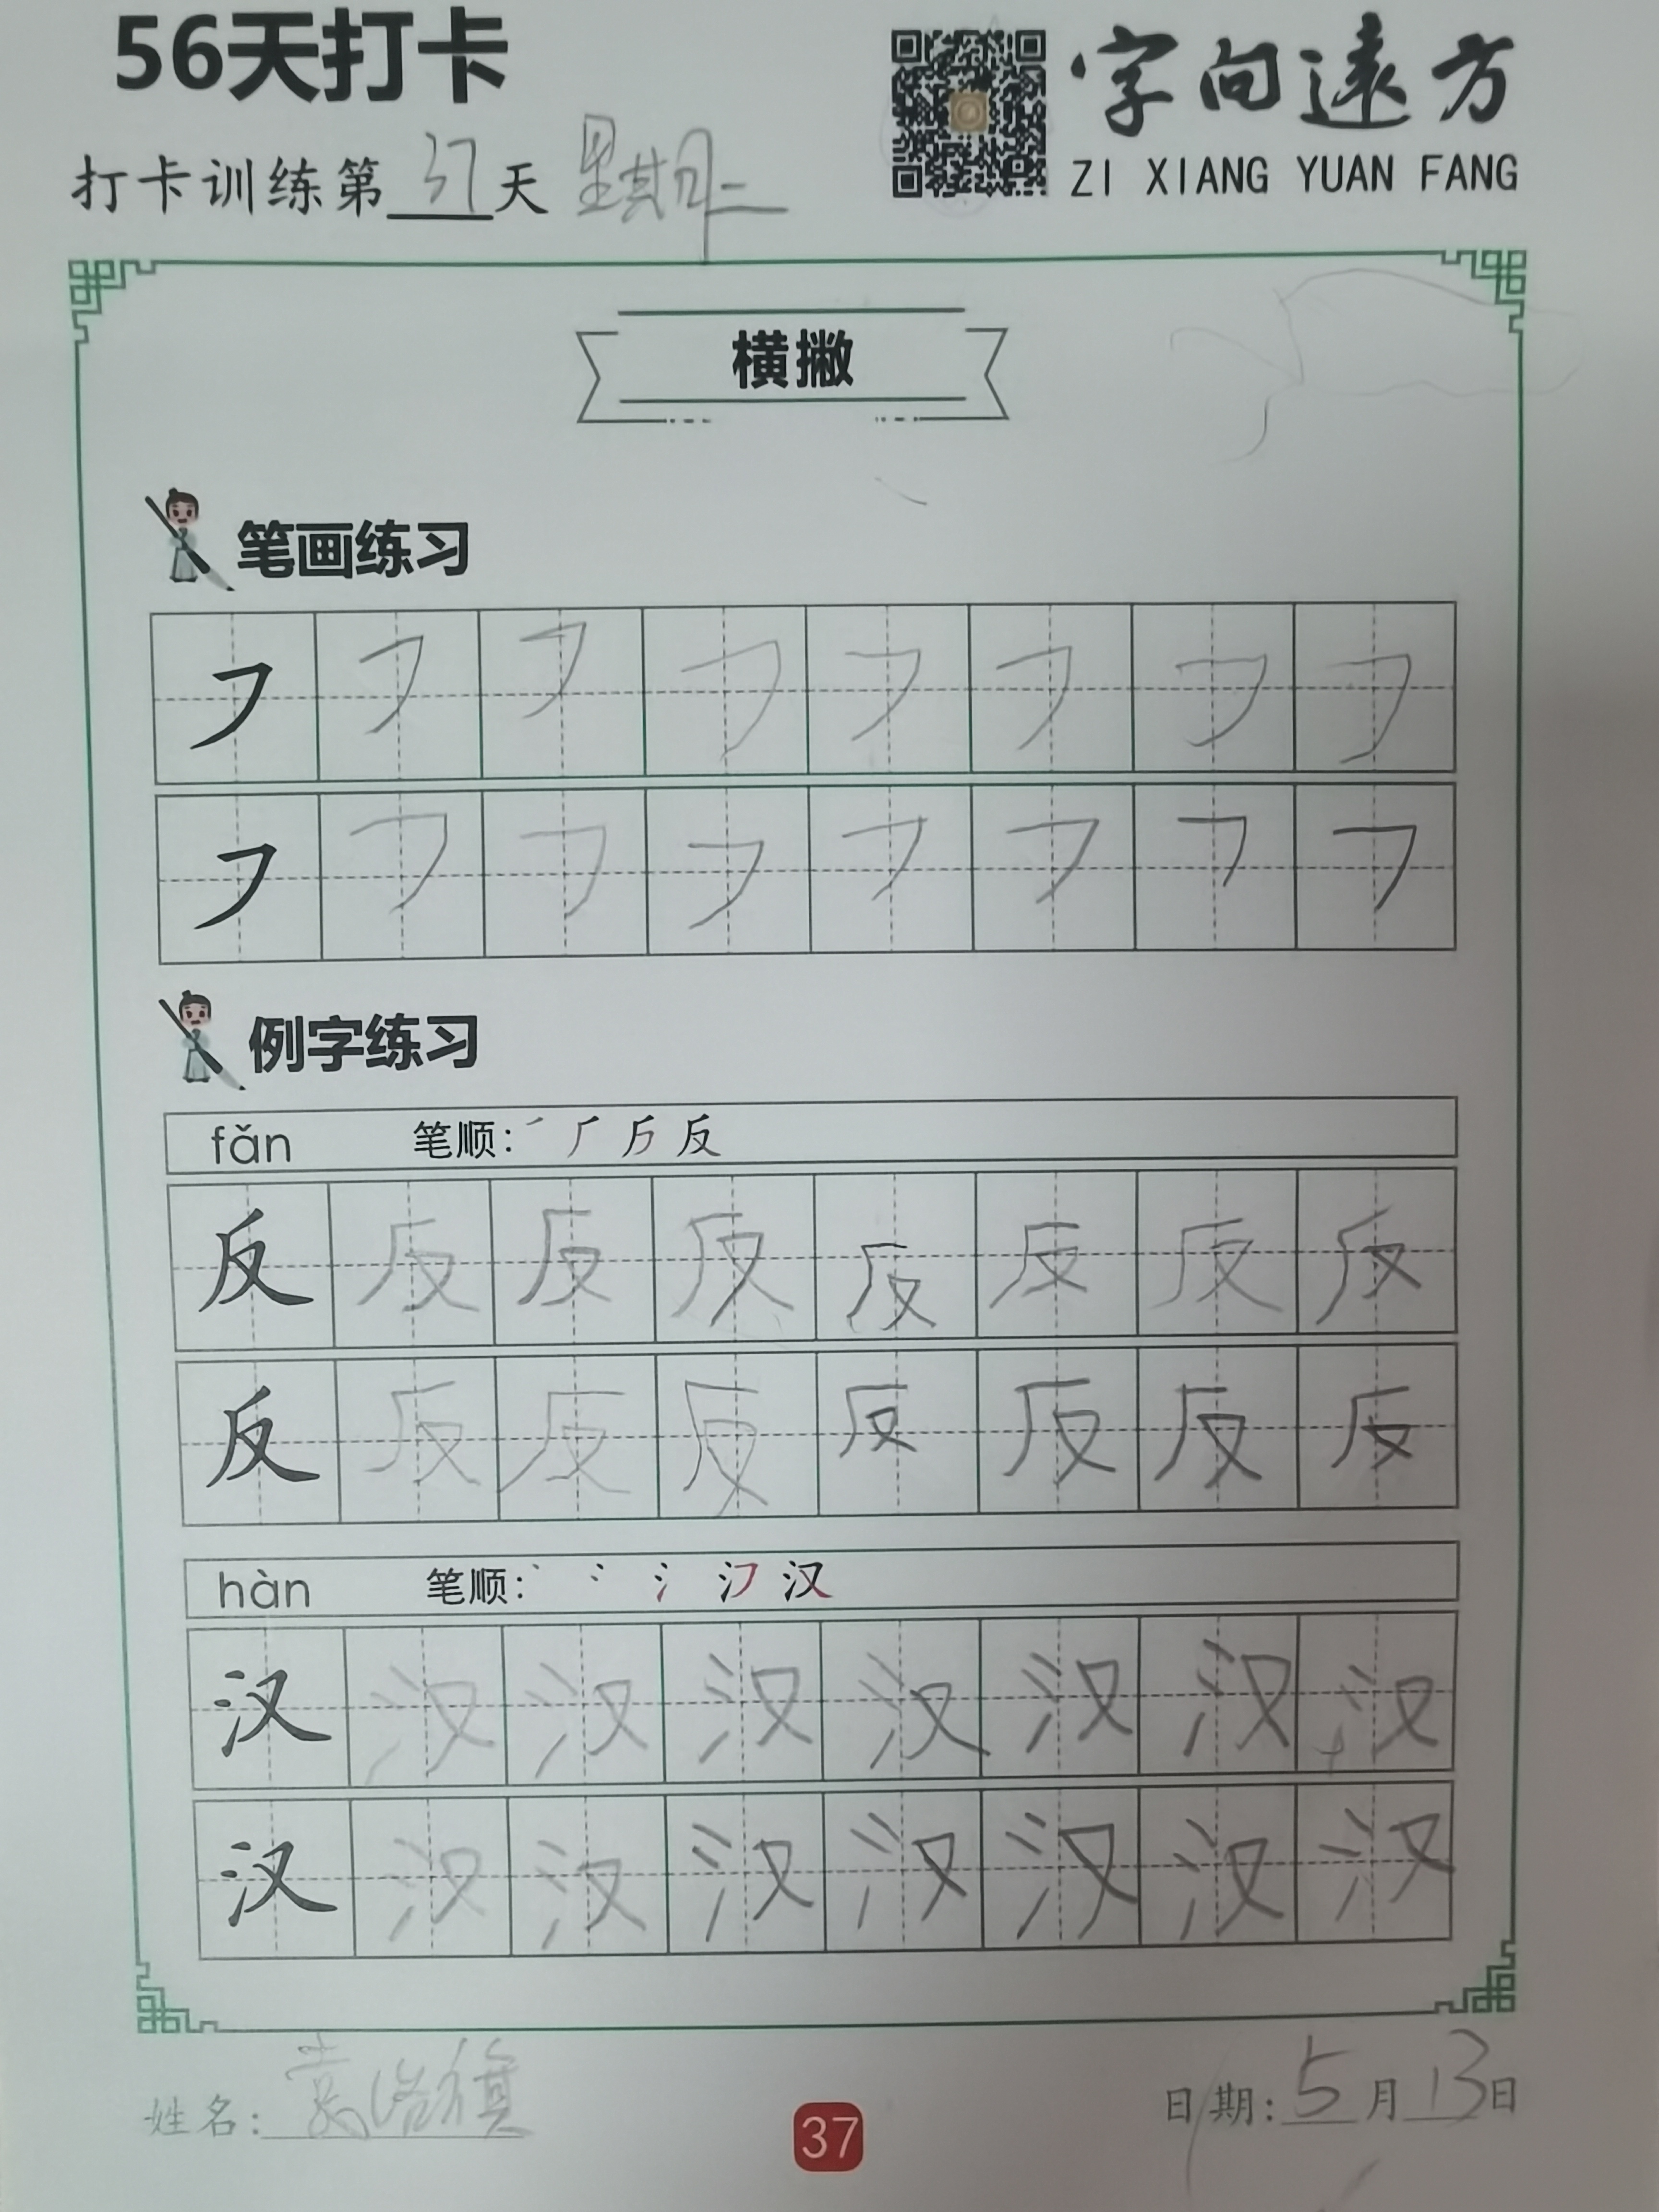 56天打卡
字向遠方
ZI XIANG YUAN FANG
打卡训练第37天 星期二
横撇
笔画练习
㇇ ㇇ ㇇ ㇇ ㇇ ㇇ ㇇ ㇇
㇇ ㇇ ㇇ ㇇ ㇇ ㇇ ㇇ ㇇
例字练习
fǎn 笔顺: 反
反 反 反 反 反 反 反 反
反 反 反 反 反 反 反 反
hàn 笔顺: 丶 冫 氵 汉
汉 汉 汉 汉 汉 汉 汉 汉
汉 汉 汉 汉 汉 汉 汉 汉
姓名: 袁浩祺
日期: 5月13日
37